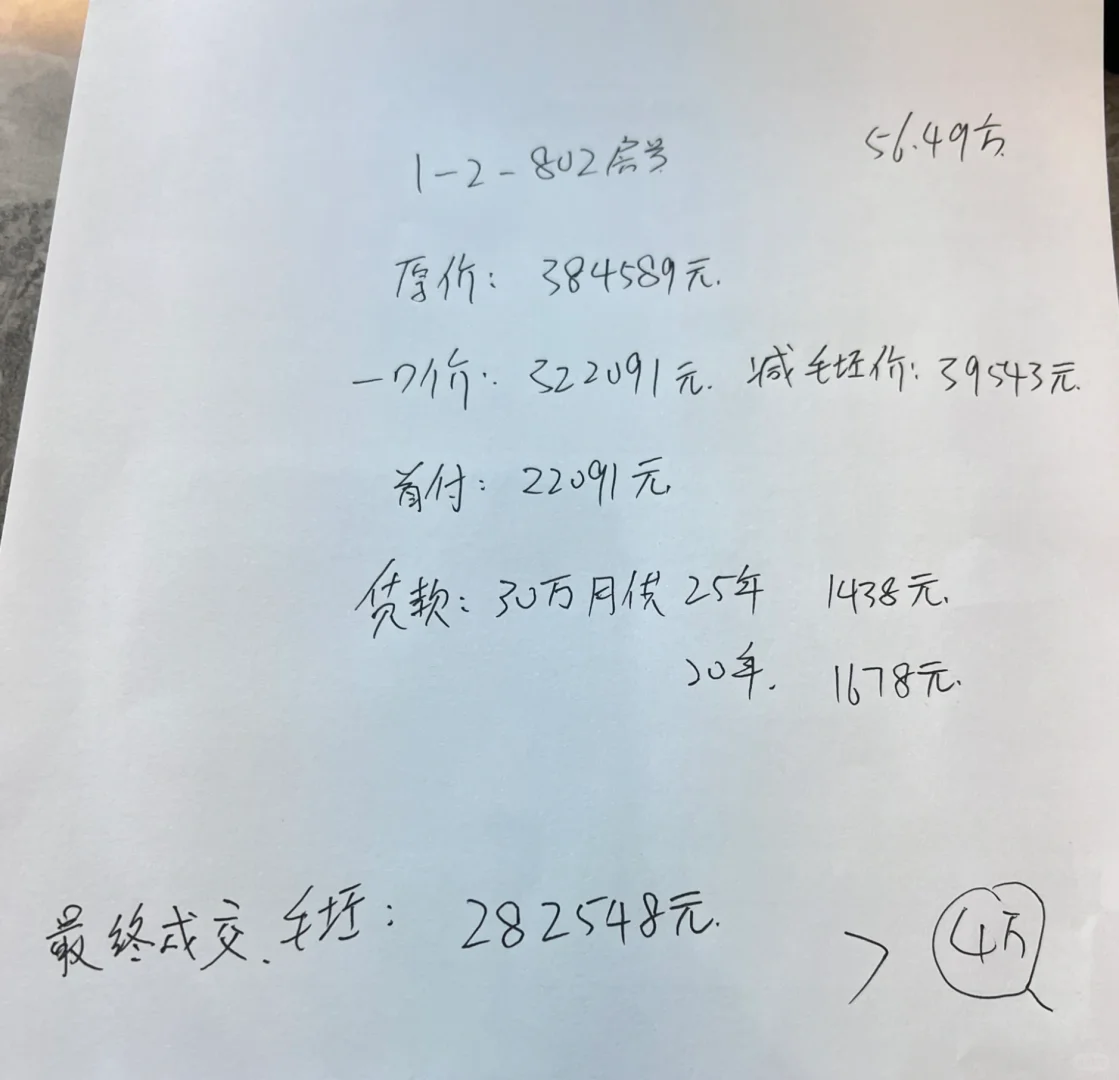 1-2-802房号 56.49方
原价: 384589元.
一口价: 322091元. 减毛坯价: 39543元.
首付: 22091元.
贷款: 30万月供 25年 1438元.
20年. 1678元.
最终成交.毛坯: 282548元. > 4万